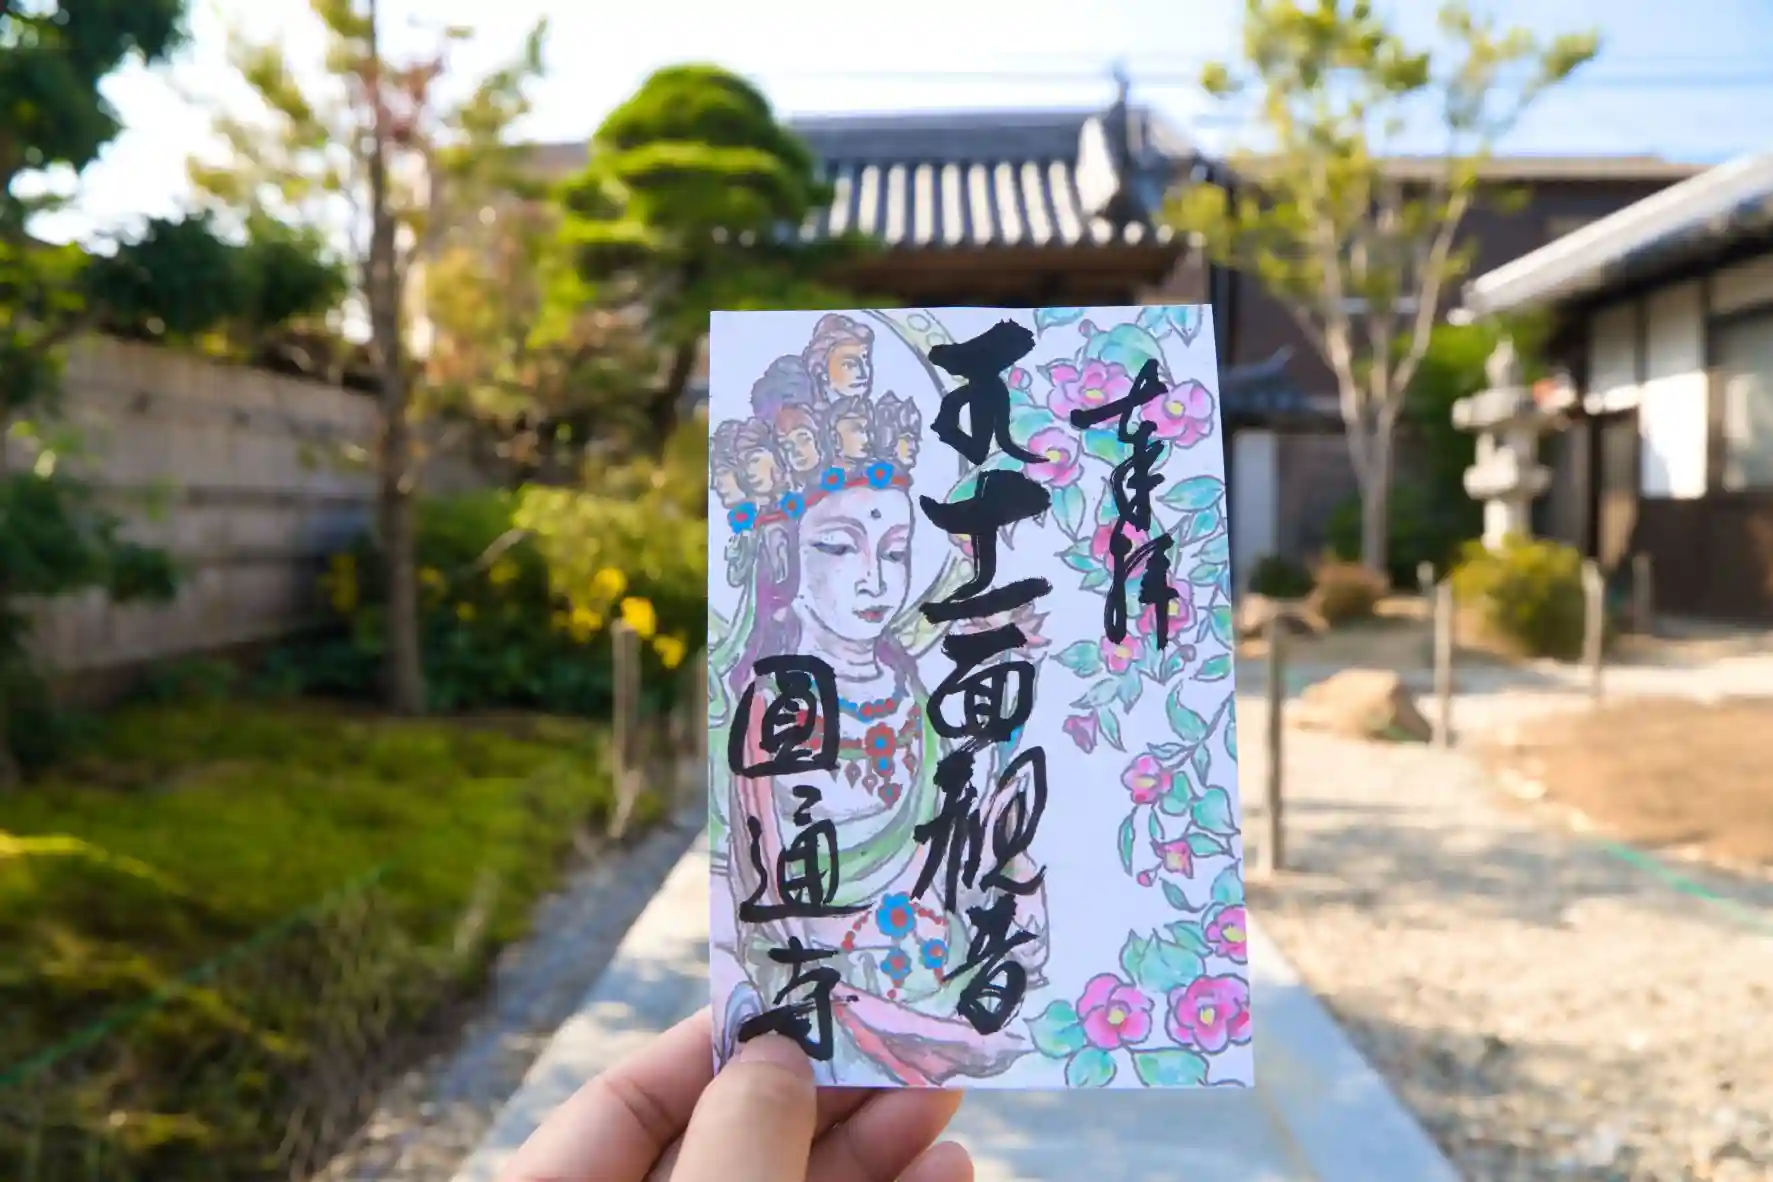 奉拝
十一面観音
圓通寺